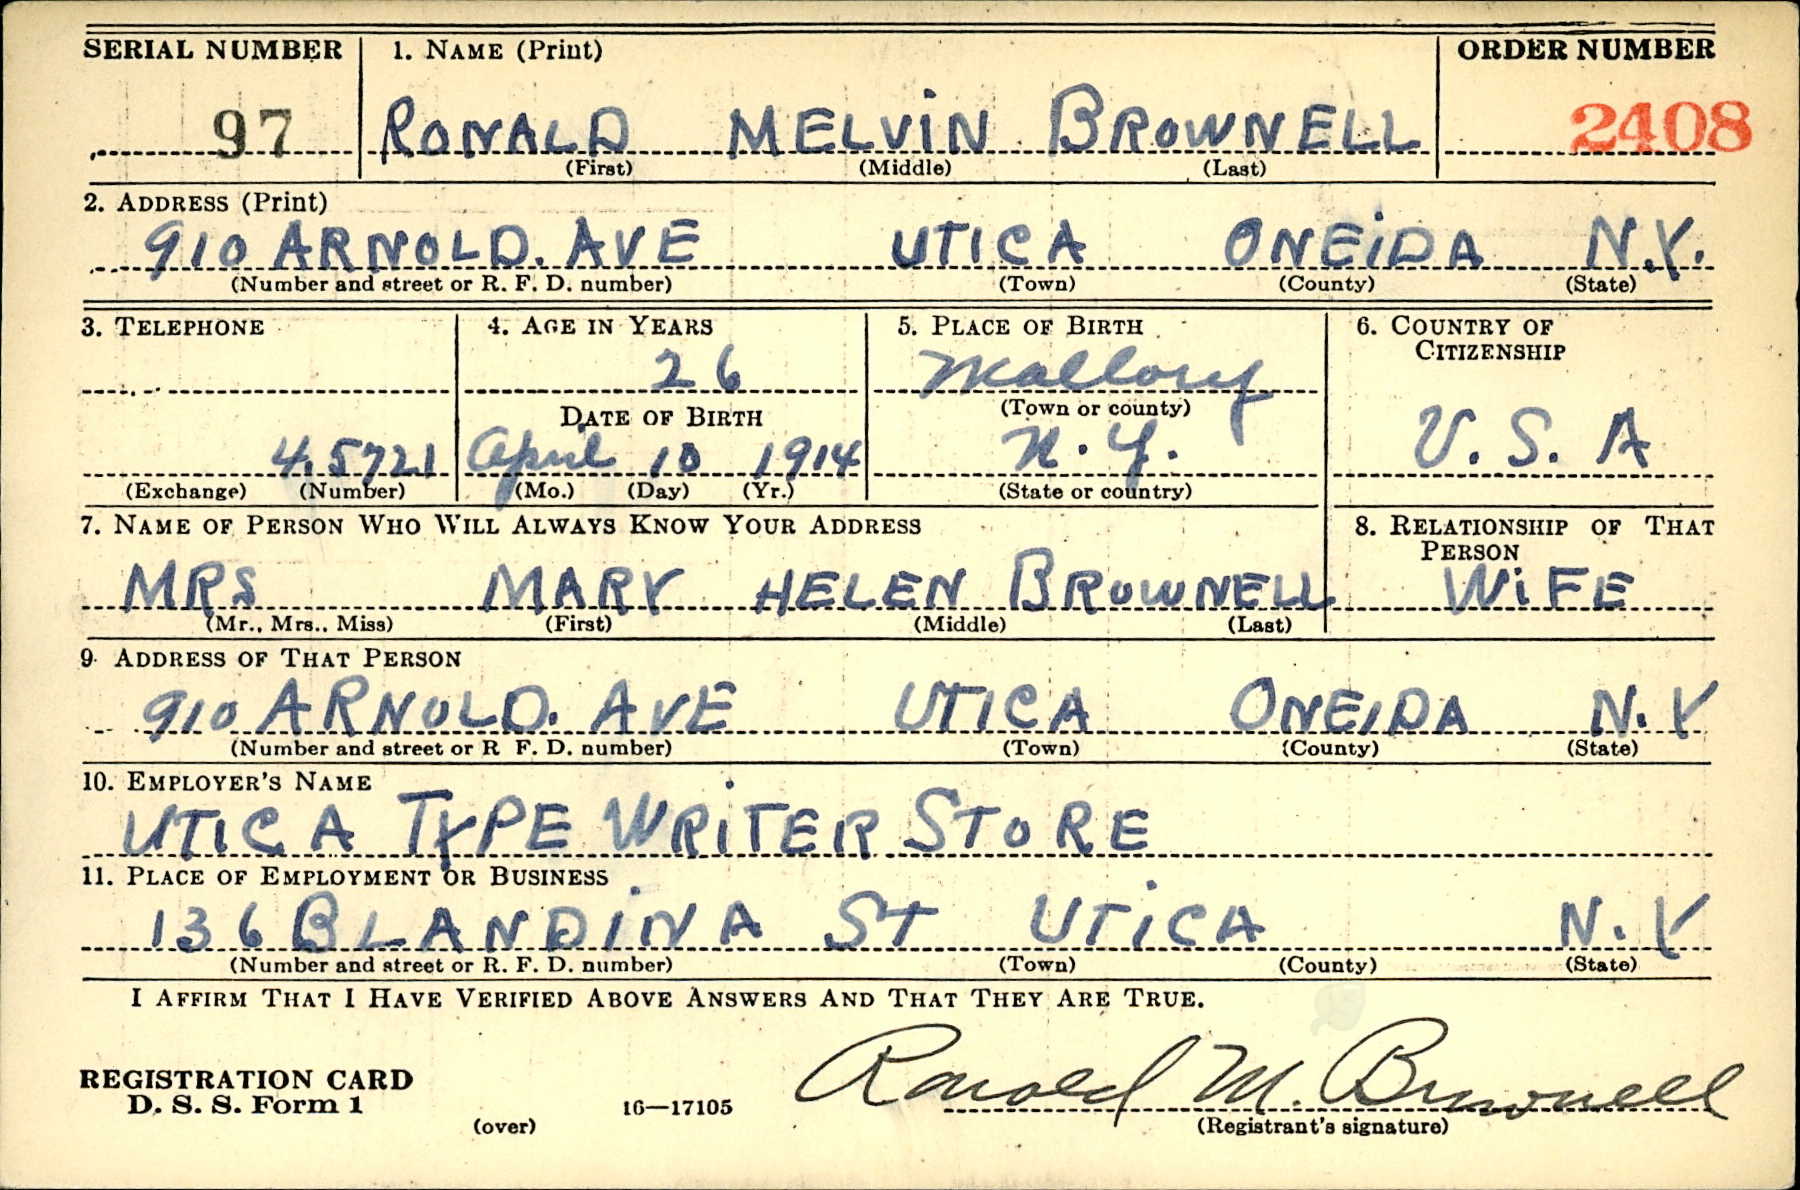 SERIAL NUMBER 1. NAME (Print) ORDER NUMBER
97 RONALD MELVIN BROWNELL 2408
(First) (Middle) (Last)
2. ADDRESS (Print)
910 ARNOLD. AVE UTICA ONEIDA N.Y.
(Number and street or R. F. D. number) (Town) (County) (State)
3. TELEPHONE 4. AGE IN YEARS 5. PLACE OF BIRTH 6. COUNTRY OF
CITIZENSHIP
26 Mallory
DATE OF BIRTH (Town or county)
45721 April 10 1914 N.Y. U.S.A
(Exchange) (Number) (Mo.) (Day) (Yr.) (State or country)
7. NAME OF PERSON WHO WILL ALWAYS KNOW YOUR ADDRESS 8. RELATIONSHIP OF THAT
PERSON
MRS MARY HELEN BROWNELL WIFE
(Mr., Mrs., Miss) (First) (Middle) (Last)
9. ADDRESS OF THAT PERSON
910 ARNOLD. AVE UTICA ONEIDA N.Y
(Number and street or R F. D. number) (Town) (County) (State)
10. EMPLOYER'S NAME
UTICA TYPE WRITER STORE
11. PLACE OF EMPLOYMENT OR BUSINESS
136 BLANDINA ST UTICA N.Y
(Number and street or R. F. D. number) (Town) (County) (State)
I AFFIRM THAT I HAVE VERIFIED ABOVE ANSWERS AND THAT THEY ARE TRUE.
REGISTRATION CARD Ronald M. Brownell
D. S. S. Form 1 16—17105
(over) (Registrant's signature)